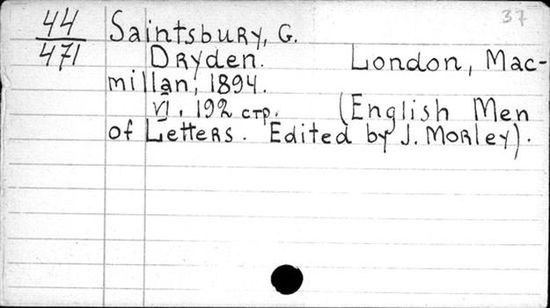 37
44 Saintsbury, G.
471 Dryden. London, Mac-
millan, 1894.
VI, 192 стр. (English Men
of Letters. Edited by J. Morley).